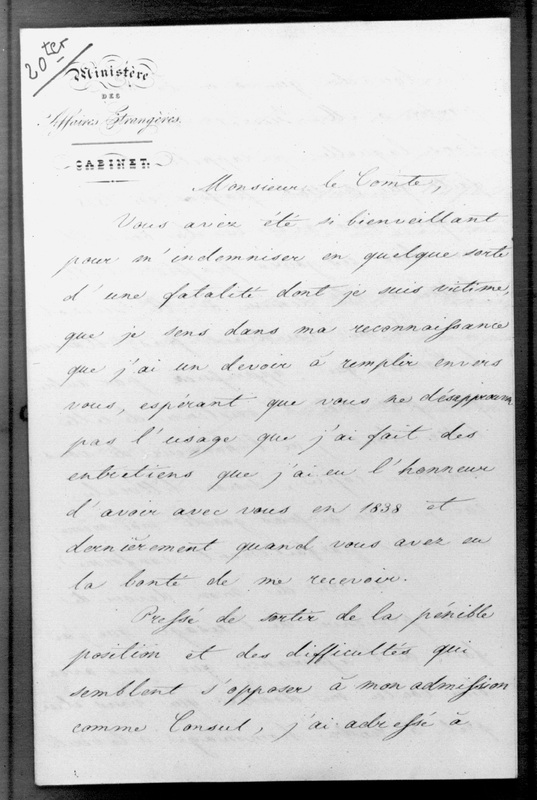 20ter
Ministère
DES
Affaires Étrangères.
CABINET.
Monsieur le Comte,
Vous aviez été si bienveillant
pour m'indemniser en quelque sorte
d'une fatalité dont je suis victime,
que je sens dans ma reconnaissance
que j'ai un devoir à remplir envers
vous, espérant que vous ne désapprouve
pas l'usage que j'ai fait des
entretiens que j'ai eu l'honneur
d'avoir avec vous en 1838 et
dernièrement quand vous avez eu
la bonté de me recevoir.
Pressé de sortir de la pénible
position et des difficultés qui
semblent s'opposer à mon admission
comme Consul, j'ai adressé à